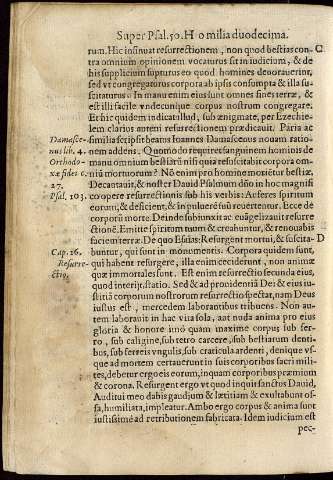 Super Psal. 50. Homilia duodecima.
rum. Hic insinuat resurrectionem, non quod bestias con- C
tra omnium opinionem vocaturus sit in iudicium, & de
his supplicium supturus eo quod homines deuorauerint,
sed vt congregaturus corpora ab ipsis consumpta & illa su-
scitaturus. In manu enim eius sunt omnes fines terræ, &
est illi facile vndecunque corpus nostrum congregare.
Et hic quidem indicat illud, sub ænigmate, per Ezechie-
lem clarius autem resurrectionem prædicauit. Paria ac
Damasce- similia scripsit beatus Ioannes Damascenus nouam ratio-
nus lib. 4. nem addens. Quomodo requiret sanguinem hominis de
Orthodo- manu omnium bestiarū nisi quia resuscitabit corpora om-
xæ fidei c. niū mortuorum? Nō enim pro homine morietur bestiæ.
27. Decantauit, & noster Dauid Psalmum dū in hoc magnifi
Psal. 103. co opere resurrectionis sub his verbis: Auferes spiritum
eorum, & deficient, & in puluerē suū reuertentur. Ecce de
corporū morte. Deinde subiunxit ac euāgelizauit resurre
ctionē. Emitte spiritum tuum & creabuntur, & renouabis
faciem terræ. De quo Esaias: Resurgent mortui, & suscita- D
Cap. 26. buntur, qui sunt in monumentis. Corpora quidem sunt,
Resurre- qui habent resurgere, illa enim ceciderunt, non animæ
ctio. quæ immortales sunt. Est enim resurrectio secunda eius,
quod interijt, statio. Sed & ad prouidentiā Dei & eius iu-
stitiā corporum nostrorum resurrectio spectat, nam Deus
iustus est, mercedem laborantibus tribuens. Non au-
tem laborauit in hac vita sola, aut nuda anima pro eius
gloria & honore imò quam maxime corpus sub fer-
ro, sub caligine, sub tetro carcere, sub bestiarum denti-
bus, sub ferreis vngulis, sub craticula ardenti, denique vs-
que ad mortem certauerunt in suis corporibus sacri mili-
tes, debetur ergo eis eorum, inquam corporibus præmium
& corona. Resurgent ergo vt quod inquit sanctus Dauid,
Auditui meo dabis gaudium & lætitiam & exultabunt os-
sa, humiliata, impleatur. Ambo ergo corpus & anima sunt
iustissimè ad retributionem fabricata. Idem iudicium est
pec-